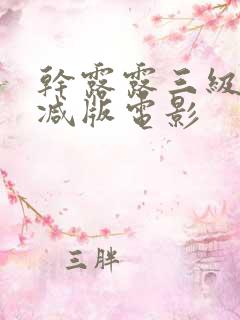 幹露露三級
减版電影
三胖